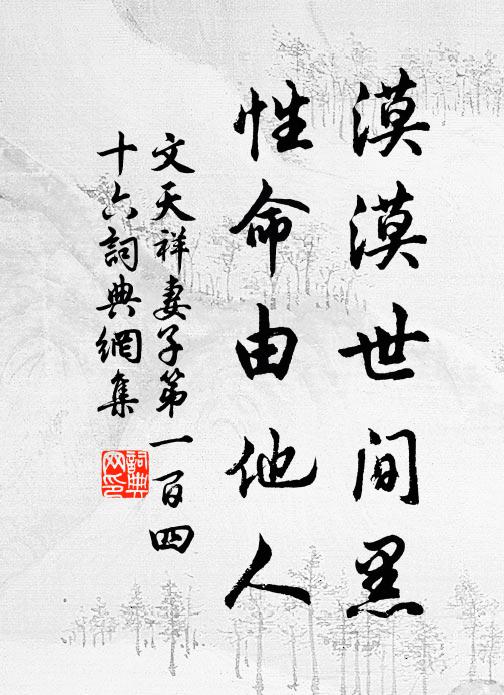 漠漠世間黑
性命由他人
文天祥妻子第一百四
十六詞典網集
詞典
网印